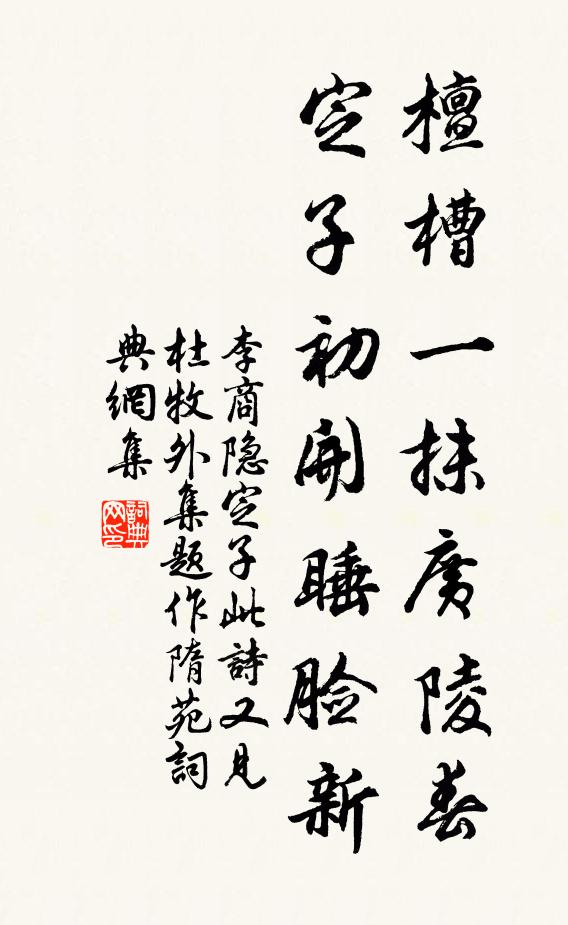 檀槽一抹廣陵春
定子初開睡脸新
李商隐定子此詩又見
杜牧外集題作隋苑詞
典網集
詞典网印